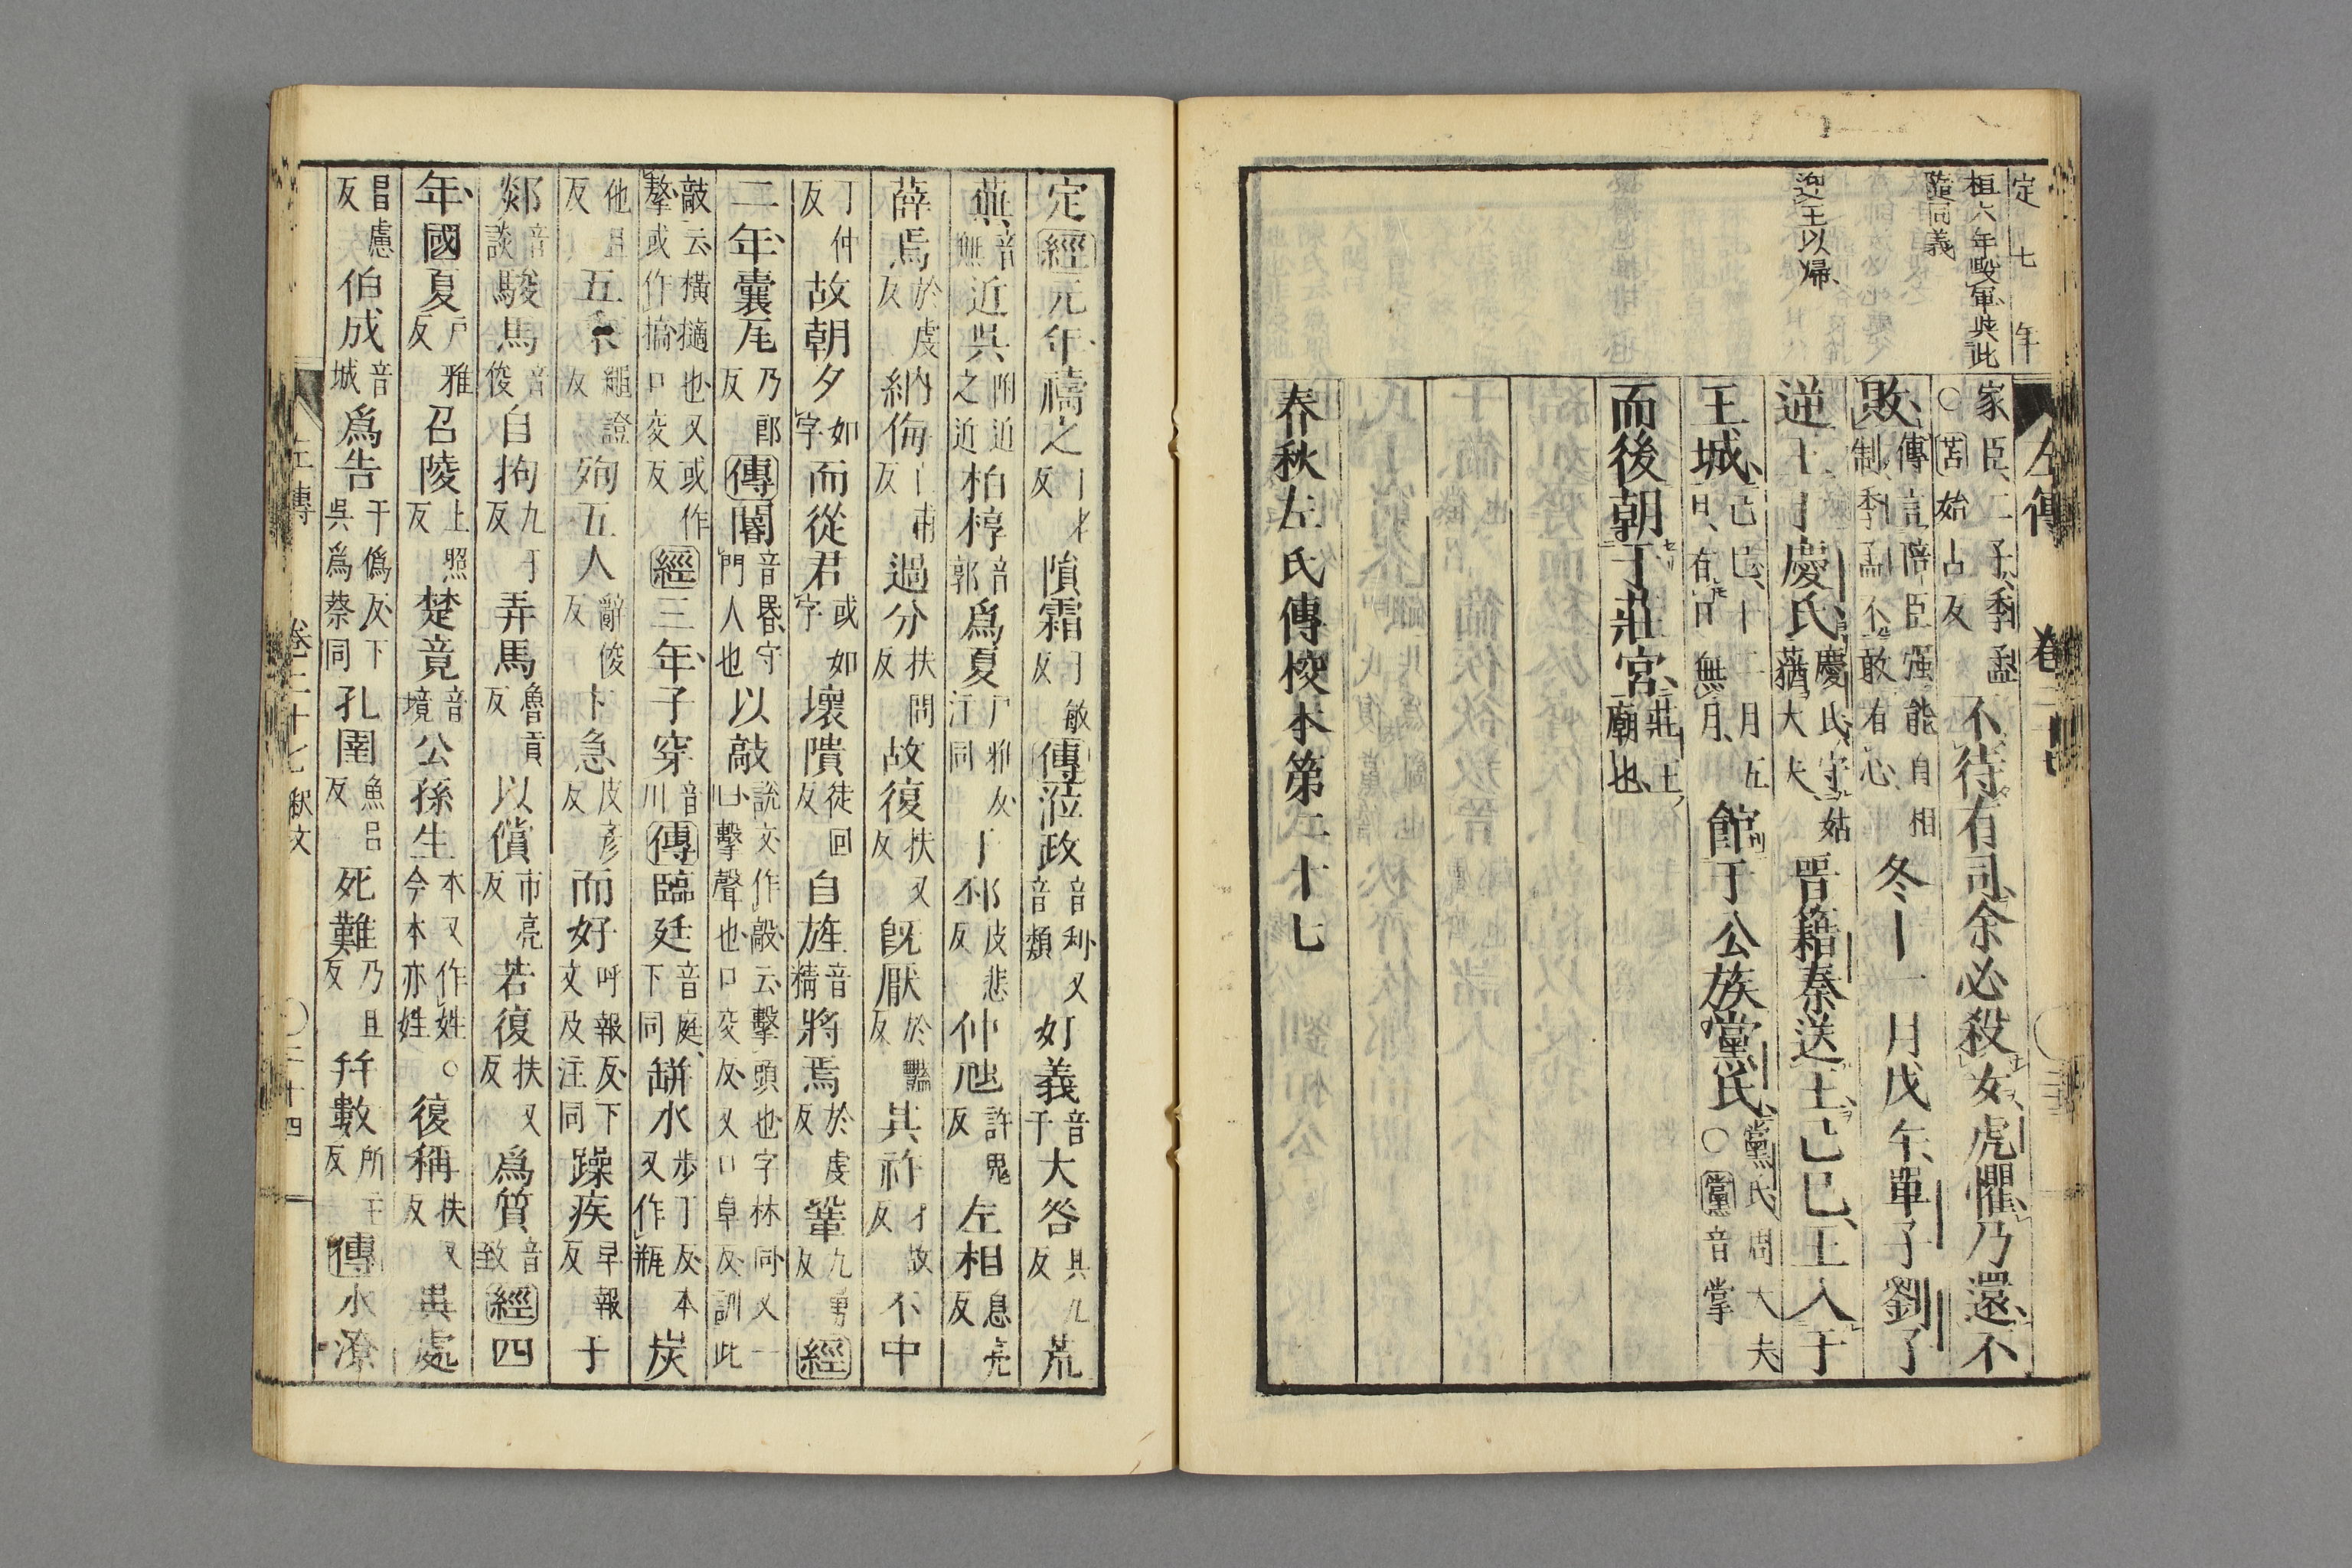 定 七 年
桓六年毀軍與此
隨同義
逆王以帰
左傳 卷二十
家臣二子季孟不待有司余必殺女虎懼乃還不
○苫始占反
敗傳言陪臣強能自相制季孟不敢有心冬十一月戊午單子劉子
逆王于慶氏慶氏守姑蕕大夫晉籍秦送王己巳王入于
王城己巳十二月五日有日無月館于公族黨氏黨氏周大夫○黨音掌
而後朝于莊宮莊王廟也
春秋左氏傳校本第二十七
定經元年禱之丁老反隕霜于敏反傳涖政音利又音類奸義音干大咎其九反荒
蕪音無近吳附近之近柏椁音郭爲夏戶雅反下同于邳皮悲反仲虺許鬼反左相息亮反
薛焉於虔反納侮亡甫反過分扶問反故復扶又反旣厭於豔反其祚才故反不中
丁仲反故朝夕如字而從君或如字壞隤徒回反自旌音精將焉於虔反鞏九勇反經
二年囊瓦乃郎反傳閽音昬守門人也以敲說文作敲云擊頭也字林同又一曰擊聲也口交反又口卓反訓此
敲云橫擿也又或作摮或作搞口交反經三年子穿音川傳臨廷音庭下同缾水步丁反本又作瓶炭
他旦反五乘繩證反殉五人辭俊反卞急皮彥反而好呼報反下文及注同躁疾早報反于
郯音談駿馬音俊自拘九于反弄馬魯貢反以償市亮反若復扶又反爲質音致經四
年國夏戶雅反召陵上照反楚竟音境公孫生本又作姓今本亦姓○復稱扶又反畀處
昌慮反伯成音城爲告于僞反下吳爲蔡同孔圉魚呂反死難乃旦反幵數所主反傳水潦
左傳 卷二十七 釈文 ○二十四